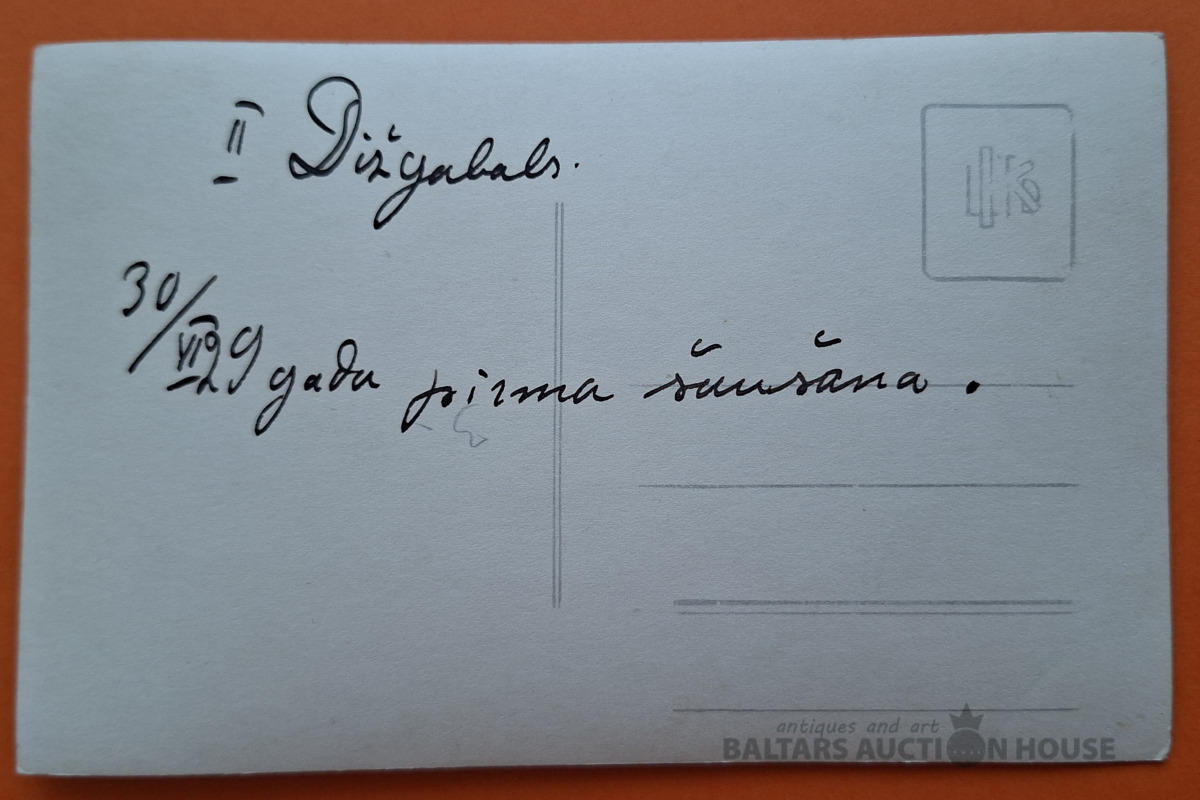 II Dižgabals.
30/VII 29 gada pirma šaušana.
antiques and art
BALTARS AUCTION HOUSE